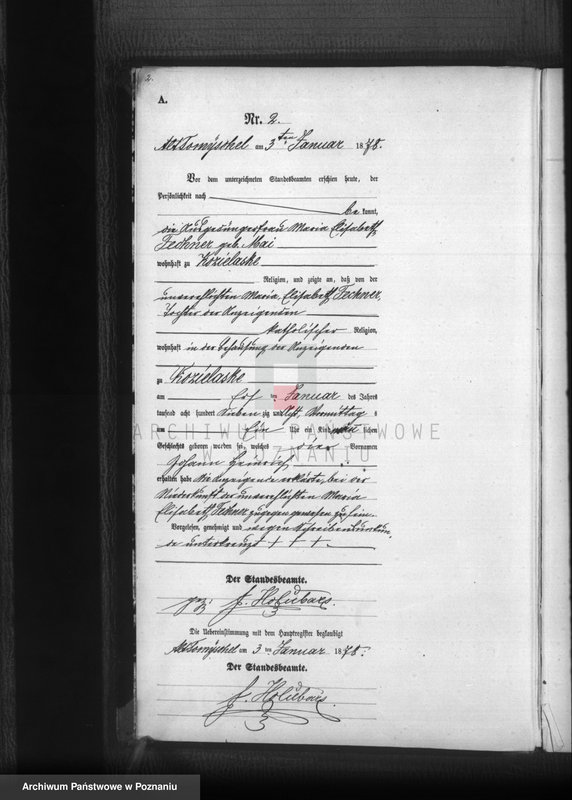 2.
A.
Nr. 2.
Alt Tomyschel am 3ten Januar 1878.
Vor dem unterzeichneten Standesbeamten erschien heute, der
Persönlichkeit nach
be kannt,
die Ausgedingerfrau Maria Elisabeth
Fechner geb. Mai
wohnhaft zu Kozielaske
Religion, und zeigte an, daß von der
unverehelichten Maria Elisabeth Fechner,
Tochter der Anzeigenden
katholischer Religion,
wohnhaft in der Behausung der Anzeigenden
zu Kozielaske
am ten Januar des Jahres
tausend acht hundert sieben zig und acht, Vormittag s
um Ein Uhr ein Kind lichen
Geschlechts geboren worden sei, welches Vornamen
Johann Heinrich
erhalten habe. Die Anzeigende erklärte, bei der
Niederkunft der unverehelichten Maria
Elisabeth Fechner zugegen gewesen zu sein.
Vorgelesen, genehmigt und wegen Schreibensunkun-
de unterkreuzt + + +.
Der Standesbeamte.
gez: F. Holubars.
Die Uebereinstimmung mit dem Hauptregister beglaubigt
Alt Tomyschel am 3 ten Januar 1878.
Der Standesbeamte.
F. Holubars
ARCHIWUM PAŃSTWOWE
W POZNANIU
Archiwum Państwowe w Poznaniu